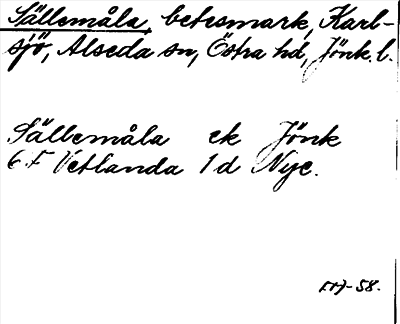 Sällemåla, betesmark, Karl-
sjö, Alseda sn, Östra hd, Jönk. l.
Sällemåla ek Jönk
6 F Vetlanda 1 d Nye.
-58.